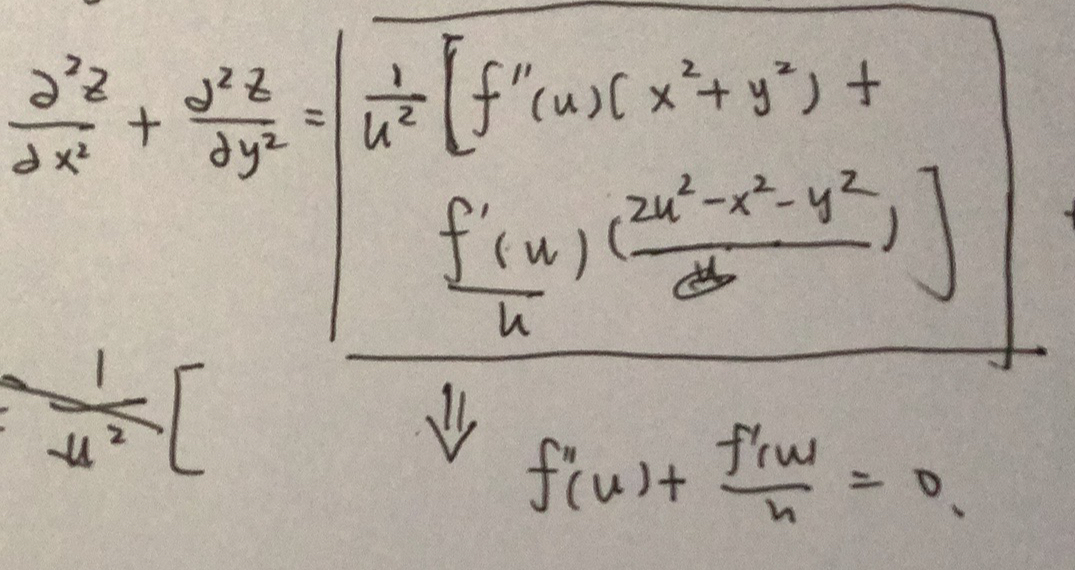 ∂²z/∂x² + ∂²z/∂y² = 1/u² [f''(u)(x² + y²) +
f'(u)/u (2u² - x² - y²)]
= 1/u² [
⇓ f''(u) + f'(u)/u = 0.